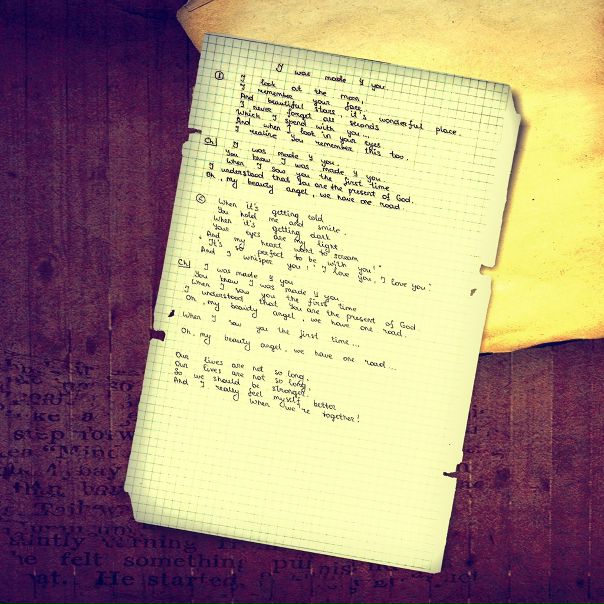 I was made 4 you.
① I look at the moon,
I remember your face
And beautiful stars, it's wonderful place.
I never forget all seconds
Which I spend with you...
And when I look in your eyes
I realize You remember this too.
Ch I was made 4 you.
You know I was made 4 you.
When I saw you the first time
I understood that You are the present of God.
Oh, my beauty angel, we have one road.
② When it's getting cold
You hold me and smile.
When it's getting dark
Your eyes are my light
And my heart want to scream
"It's so perfect to be with you!"
And I whisper you: "I love you, I love you"
Ch I was made 4 you
You know I was made 4 you
When I saw you the first time
I understood that You are the present of God.
Oh, my beauty angel, we have one road.
When I saw you the first time...
Oh, my beauty angel, we have one road...
Our lives are not so long,
Our lives are not so long,
So we should be stronger.
And I really feel myself better
When we're together!
step forw
bay
than
felt something
at. He started